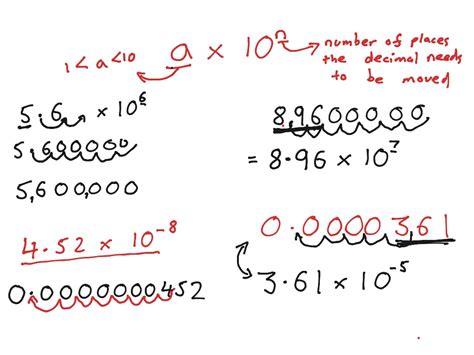 1 < a < 10
a × 10ⁿ → number of places
the decimal needs
to be moved
5.6 × 10⁶
5.600000
5,600,000
4.52 × 10⁻⁸
0.0000000452
8,9600000
= 8.96 × 10⁷
0.00003,61
3.61 × 10⁻⁵